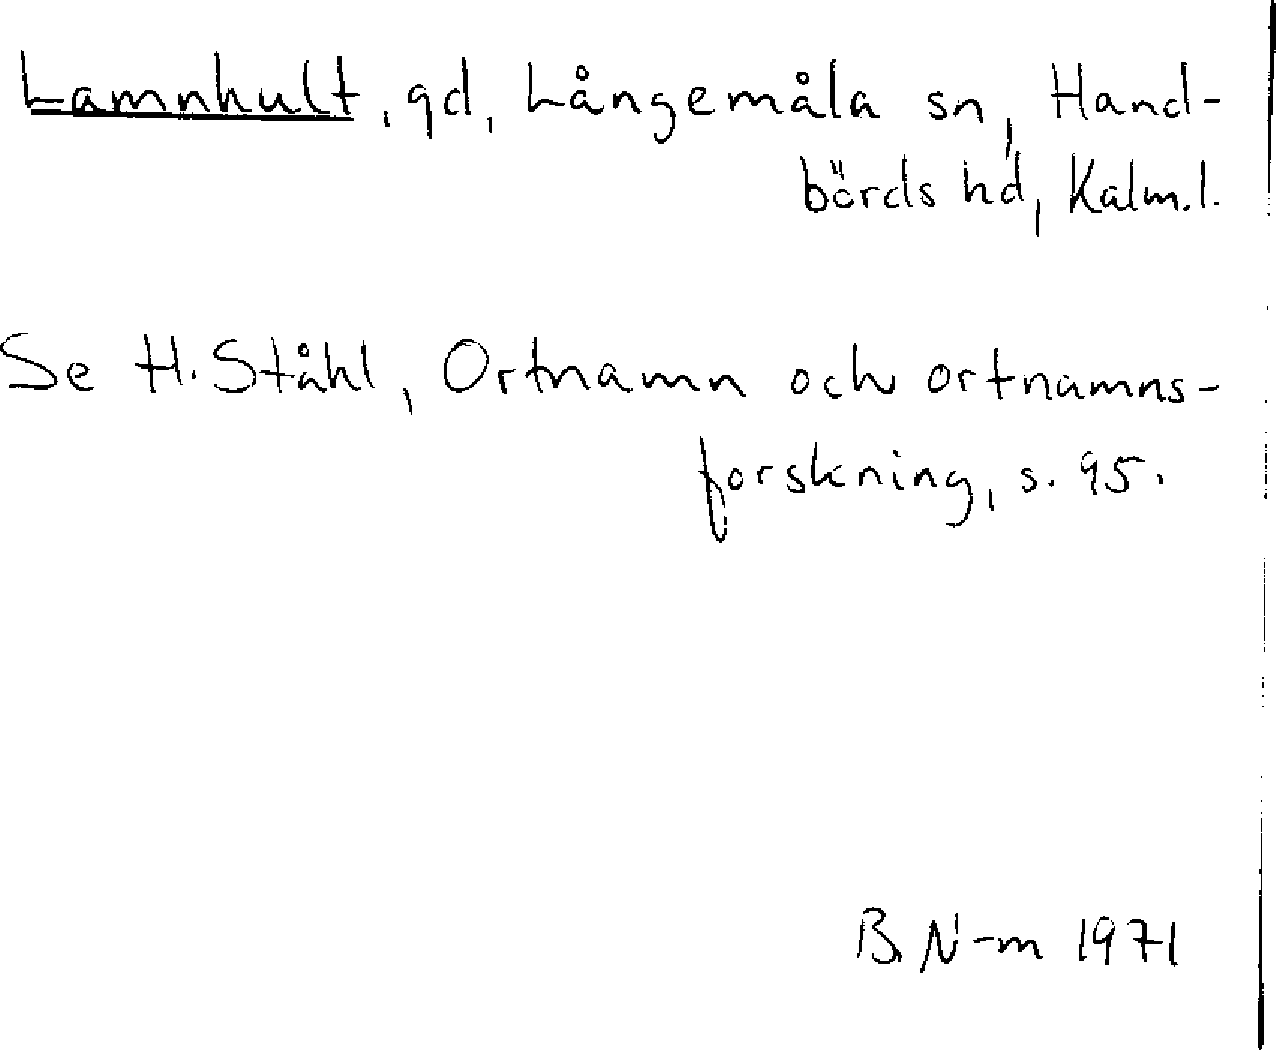 Lamnhult, gd, Långemåla sn, Hand-
börds hd, Kalm.l.
Se H. Ståhl, Ortnamn och ortnamns-
forskning, s. 95.
B. N-m 1971